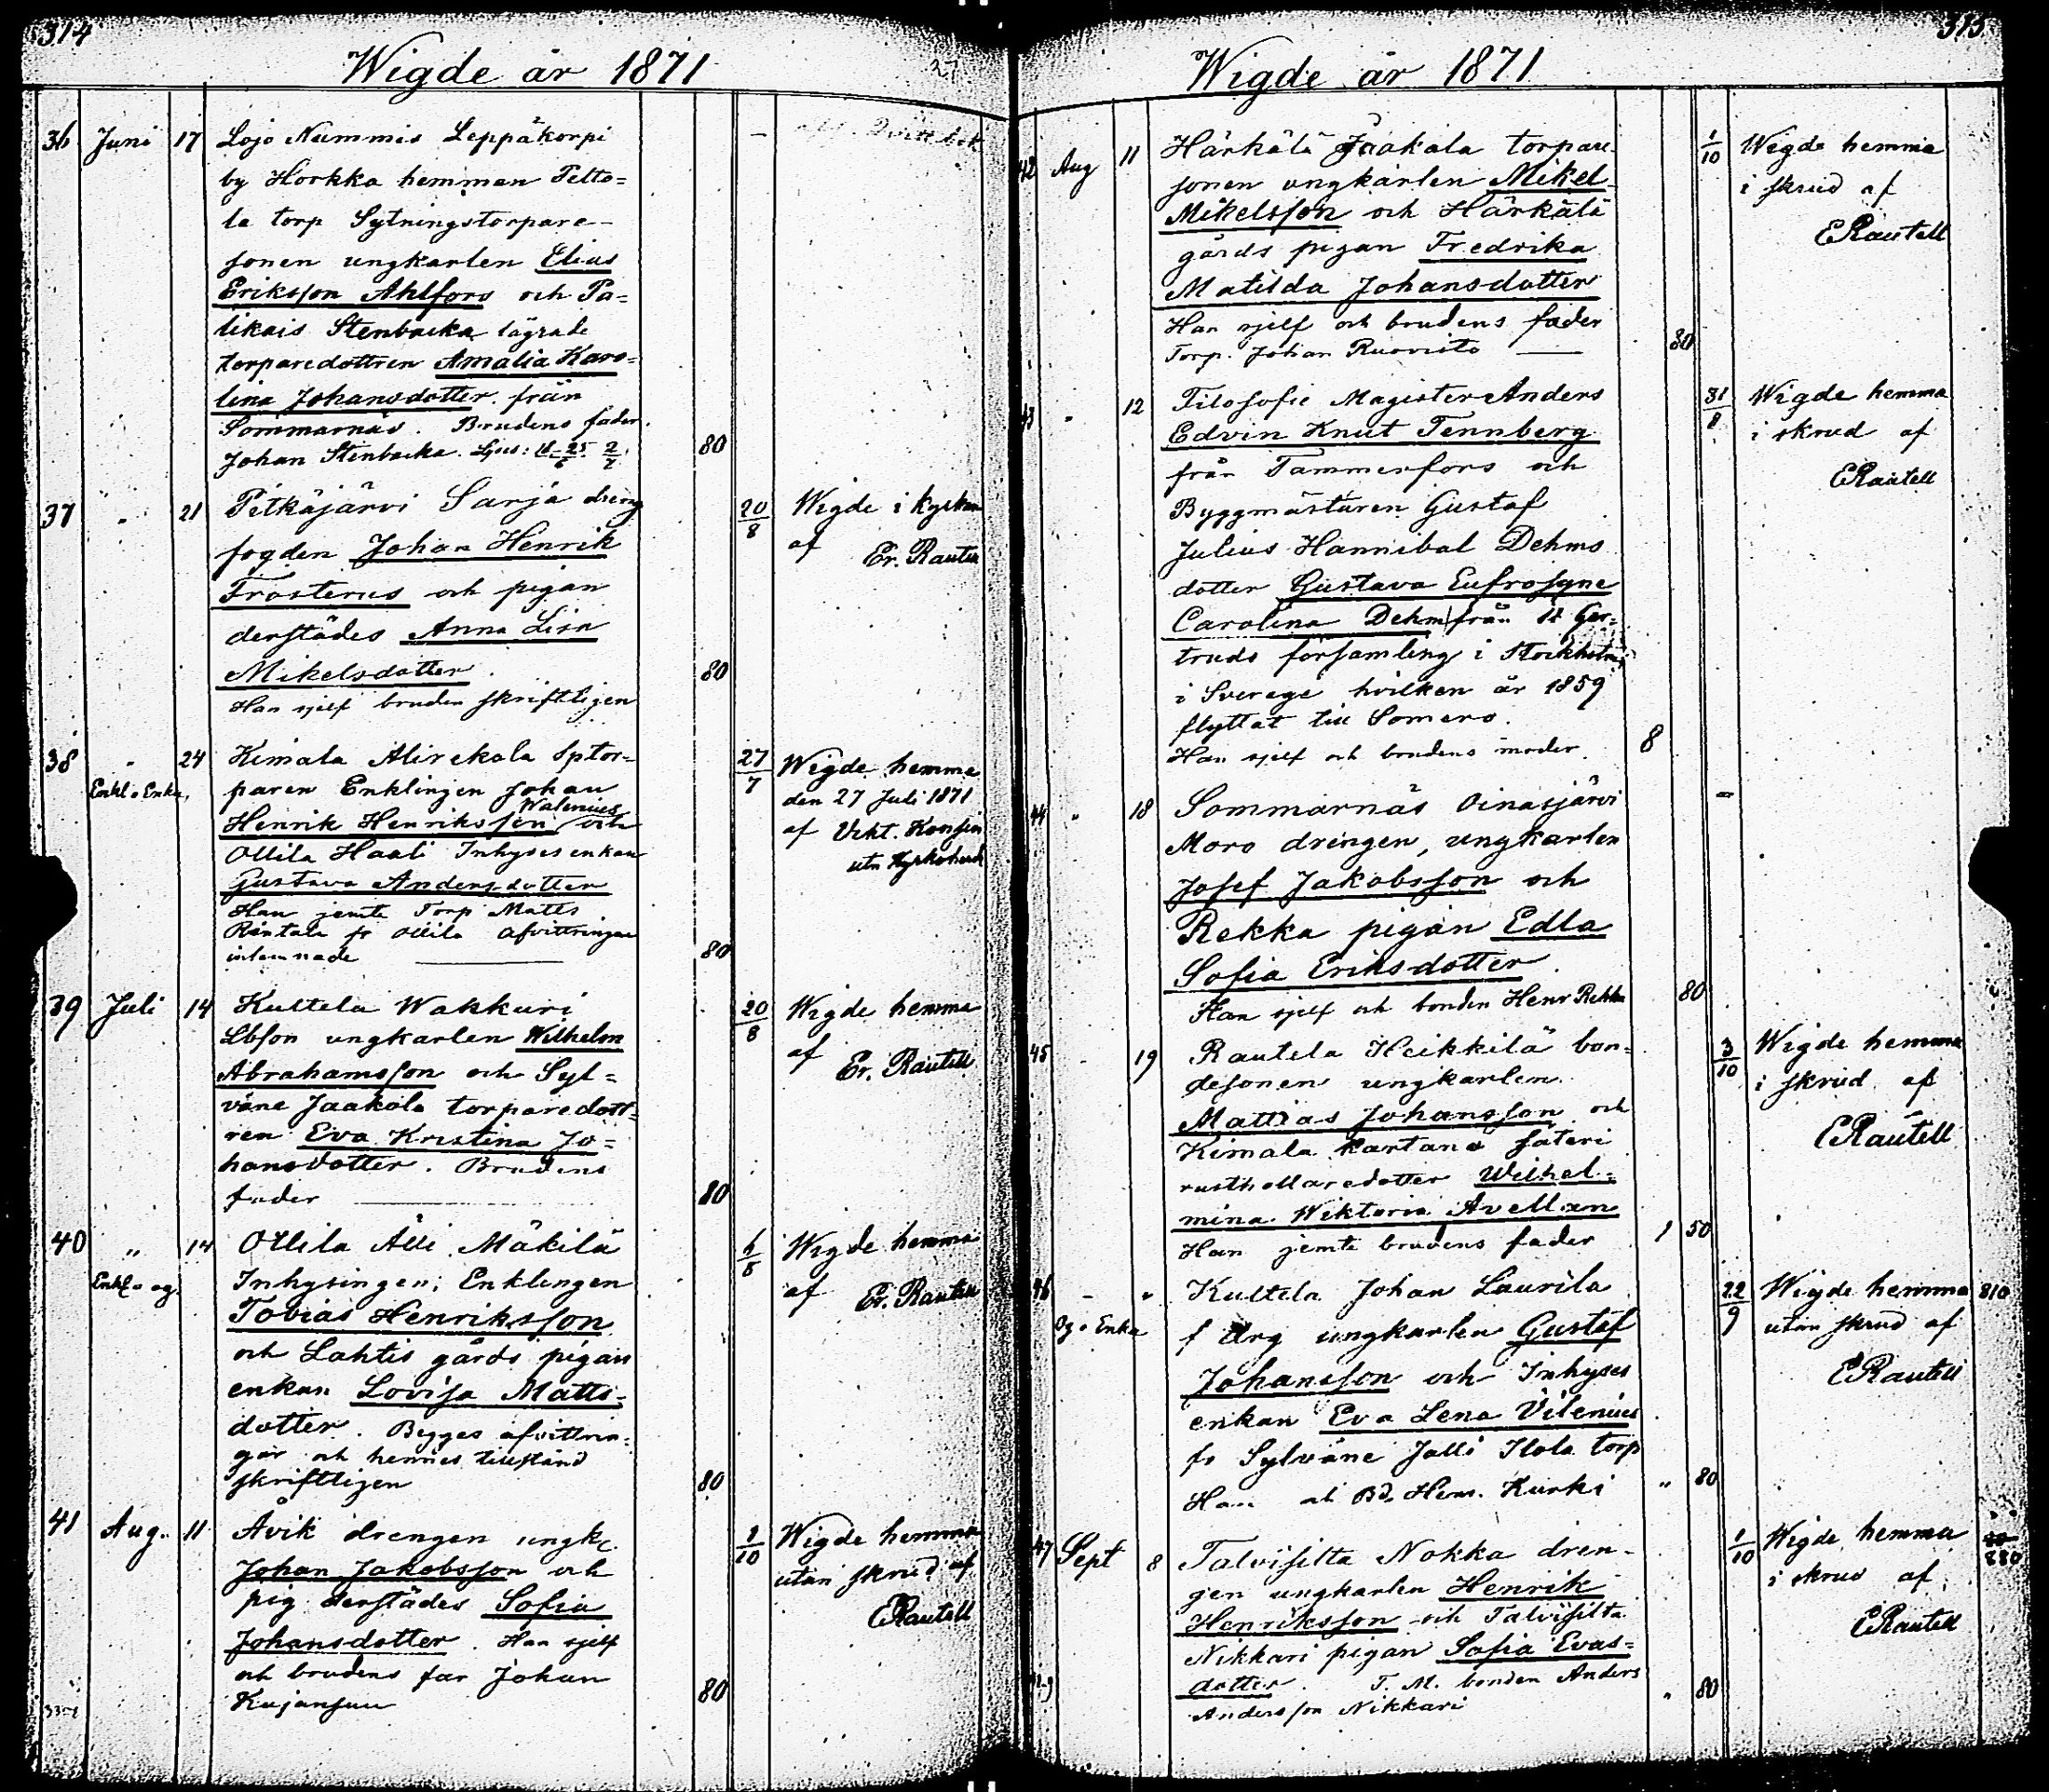 314
Wigde år 1871
27
36 Juni 17 Lojo Nummis Leppäkorpi
by Horkka hemman Pelto=
la torp Sytningstorpare-
sonen ungkarlen Elias
Eriksson Ahlfors och Pa=
likais Stenbacka lägrade
torparedottren Amalia Karo=
lina Johansdotter från
Sommarnäs. Brudens fader
Johan Stenbacka. Ljus: 80
37 " 21 Pitkäjärvi Sarjä dreng 20/8 Wigde i kyrkan
fogden Johan Henrik af Er. Rautell
Frosterus och pigan
derstädes Anna Lisa
Mikelsdotter 80
Han sjelf bruden skriftligen
38 " 24 Kimala Alirekola sptor= 27/7 Wigde hemma
Enkl o Enka paren Enklingen Johan den 27 Juli 1871
Walenius
Henrik Henriksson och af
Ollila Haali Inhyses enkan
Gustava Andersdotter
Han jemte Torp Matts
Rantala fr Ollila afvittringar
inlemnade 80
39 Juli 14 Kultela Wakkuri 20/8 Wigde hemma
Lbson ungkarlen Wilhelm af Er. Rautell
Abrahamsson och Syl=
väne Jaakola torparedott=
ren Eva Kristina Jo=
hansdotter. Brudens
fader 80
40 " 14 Ollila Äli Mäkilä Wigde hemma
Enkl o og. Inhysingen; Enklingen af Er. Rautell
Tobias Henriksson
och Lahtis gårds pigan
enkan Lovisa Matts=
dotter. Begges afvittrin=
gar och hennes tillstånd
skriftligen 80
41 Aug. 11 Åvik drengen ungk. 1/10 Wigde hemma
Johan Jakobsson och utan skrud af
pig derstädes Sofia ERautell
Johansdotter. Han sjelf
och brudens far Johan
Kujansuu 80
315
Wigde år 1871
42 Aug 11 Härkälä Jaakola torpare 1/10 Wigde hemma
sonen ungkarlen Mikel i skrud af
Mikelsson och Härkälä ERautell
gårds pigan Fredrika
Matilda Johansdotter
Han sjelf och brudens fader
Torp. Johan Ruovisto 80
43 " 12 Filosofie Magister Anders 31/8 Wigde hemma
Edvin Knut Tennberg i skrud af
från Tammerfors och ERautell
Byggmästaren Gustaf
Julius Hannibal Dehms
dotter Gustava Eufrosyne
Carolina Dehm från St Ger=
truds församling i Stockholm
i Sverege hvilken år 1859
flyttat till Somero.
Han sjelf och brudens moder 8
44 " 18 Sommarnäs Oinasjärvi -
Moro drengen, ungkarlen
Josef Jakobsson och
Rekka pigan Edla
Sofia Eriksdotter.
Han sjelf och bonden Henr Rekka 80
45 - 19 Rautela Heikkilä bon= 3/10 Wigde hemma
desonen ungkarlen i skrud af
Mattias Johansson och ERautell
Kimala kartano säteri
rusthollaredotter Wilhel=
mina Wiktoria Avellan
Han jemte brudens fader 1 50
46 - " Kultela Johan Laurila 22/9 Wigde hemma 810
Og o Enka f drg ungkarlen Gustaf utan skrud af
Johansson och Inhyses ERautell
enkan Eva Lena Vilenius
fr Sylväne Jalli Ilola torp
Han och Bd. Hem. Kurki " 80
47 Sept 8 Talvisilta Nokka dren- 1/10 Wigde hemma
gen ungkarlen Henrik i skrud af 880
Henriksson och Talvisilta ERautell
Nikkari pigan Sofia Evas=
dotter. T. M. bonden Anders
Andersson Nikkari " 80